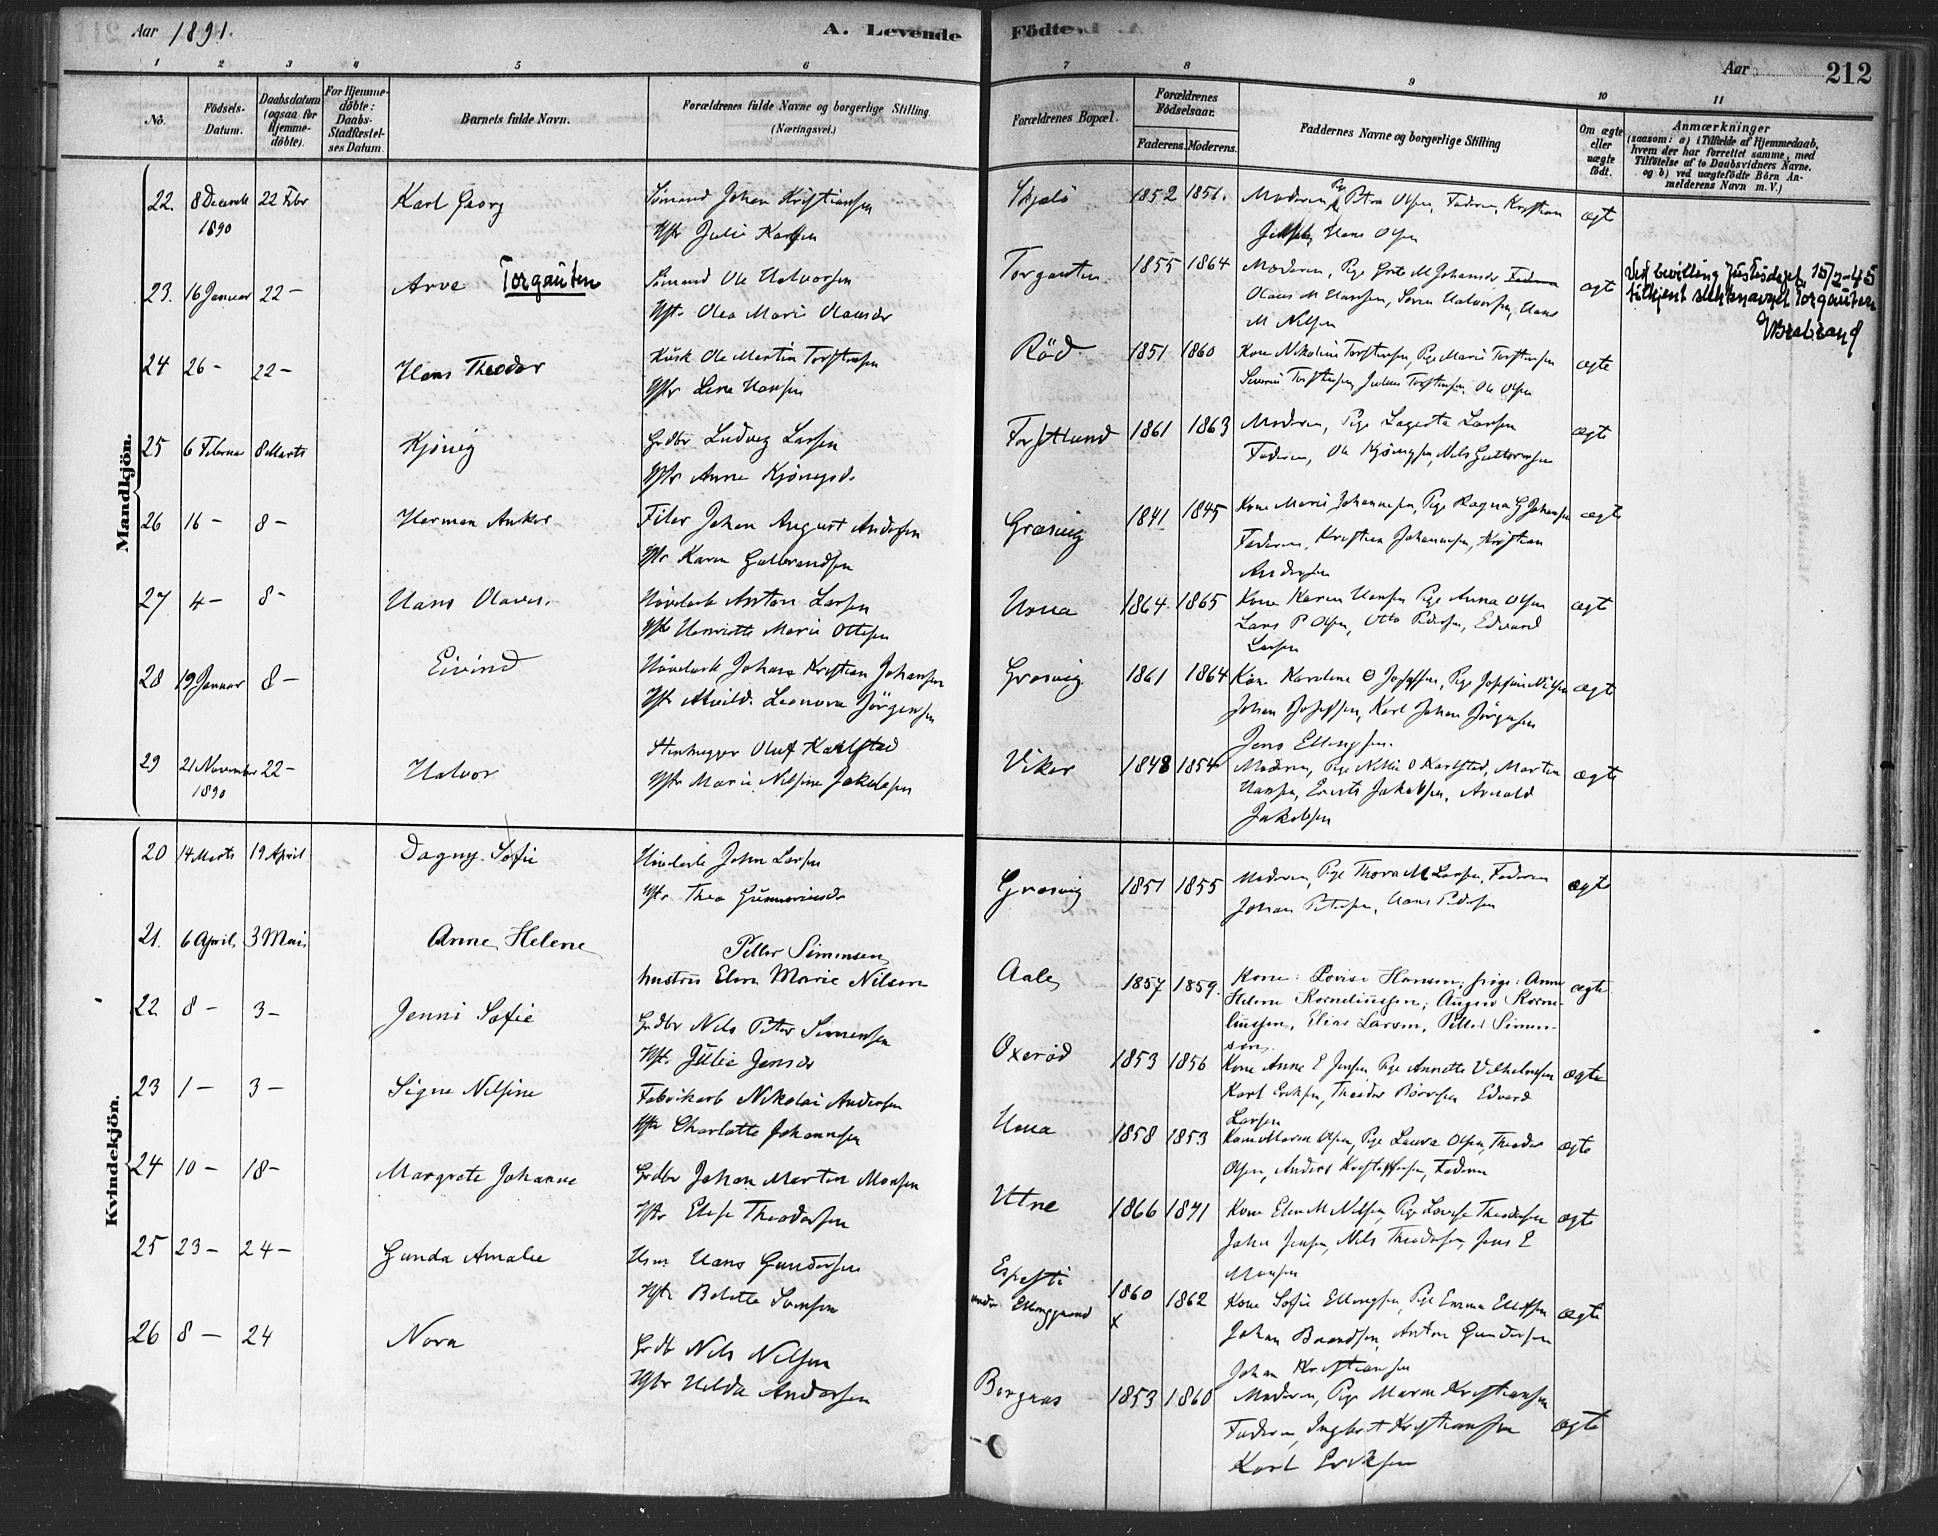 Aar 1891.
A. Levende
Födte.
Aar
212
1 2 3 4 5 6 7 8 9 10 11
No.
Födsels-Datum.
Daabsdatum (ogsaa for Hjemmedöbte).
For Hjemmedöbte: Daabs-Stadfæstelses Datum.
Barnets fulde Navn.
Forældrenes fulde Navne og borgerlige Stilling (Næringsvei.)
Forældrenes Bopæl.
Forældrenes Födselsaar.
Faderens. Moderens.
Faddernes Navne og borgerlige Stilling
Om ægte eller uægte födt.
Anmærkninger
(saasom: a) i Tilfælde af Hjemmedaab, hvem der har forrettet samme, med Tilföielse af to Daabsvidners Navne, og b) ved uægtefödte Börn Anmelderens Navn m. V.)
Mandkjön.
22. 8 Decemb 1890 22 Febr Karl Georg Sömand Johan Kristiansen
Hstr Julie Karlsen
Skjelö 1852 1851. Moderen, Pg Petra Olsen, Faderen, Kristian
Hans Olsen ægte
23. 16 Januar 22 – Arve Torgauten Sömand Ole Halvorsen
Hst. Olea Marie Olausdr
Torgauten 1855 1864 Moderen, Pige Grete M Johansdr Faderen
Olaus M Hansen, Sören Halvorsen, Hans
M Nilsen ægte
Ved bevilling Justisdepet 15/2-45
tilkjent slektsnavnet Torgauten
24 26 – 22 – Hans Theodor Kusk Ole Martin Torstensen
Hstr Lene Hansen
Röd 1851 1860 Kone Nikoline Torstensen, Pige Marie Torstensen
Severin Torstensen, Julius Torstensen, Ole Olsen ægte
25 6 Februa 8 Marts Kjönig Grdbr Ludvig Larsen
Hstr Anne Kjönigsd.
1861 1863 Moderen, Pige Lagerta Larsen
Faderen, Ole Kjönigsen, Nils Guttormsen ægte
26 16 – 8 – Herman Anker Filer Johan August Andersen
Hstr Karen Gulbrandsen
Græsvig 1841 1845 Kone Marie Johannesen, Pige Ragna G Johansen
Faderen, Kristian Johannesen, Kristian
Andersen ægte
27 4 – 8 – Hans Olaves. Hövelearb Anton Larsen
Hstr Henriette Marie Ottesen
Huna 1864 1865 Kone Karen Hansen Pige Anna Olsen
Lars P Olsen, Otto Pedersen, Edvard
Larsen ægte
28 19 Januar 8 – Eivind Höveleарb Johans Kristian Johansen
Hstr Alvild. Leonora Jörgensen
Græsvig 1861 1864 Kone Karoline O Josefsen, Pige Josefine Nilsen
Johan Josefsen, Karl Johan Jörgensen
Jens Ellingsen. ægte
29 21 November 1890 22 – Halvor Stenhugger Oluf Karlstad
Hstr Marie Nilsine Jakobsen
Viker 1848 1854 Moderen, Pige Nikka O Karlstad, Morten
Hansen, Ernst Jakobsen, Arnold
Jakobsen ægte
Kvindekjön.
20 14 Marts 19 April Dagny Sofie Hövlearb John Larsen
Hstr Thea Gunneriusdr
Græsvig 1851 1855 Moderen, Pige Thora M Larsen, Faderen
Johan Petersen, Hans Pedersen ægte
21. 6 April, 3 Mai, Anne Helene Petter Simensen,
hustru Elen Marie Nilsen
Aale, 1857 1859. Kone: Lovise Hansen, pige: Anne
Helene Korneliussen; August Korne-
liussen, Elias Larsen, Petter Simen-
sen. ægte
22 8 – 3 – Jenni Sofie Grdbr Nils Peter Simensen
Hst. Julie Jensdr
Oxeröd 1853 1856 Kone Anne E Jensen Pige Annette Vilhelmsen
Karl Eriksen, Theodor Börresen Edvard
Larsen ægte
23 1 – 3 – Signe Nilsine Fabrikarb Nikolai Andersen
Hstr Charlotte Johannesen
Huna 1858 1853 Kone Maren Olsen, Pige Laura Olsen, Theodor
Olsen, Anders Kristoffersen, Faderen ægte
24 10 – 18 – Margrete Johanne Grdbr Johan Martin Monsen
Hstr Elise Theodorsen
Utne 1866 1871 Kone Elen M Nilsen, Pige Lovise Theodorsen
Johan Jensen, Nils Theodorsen, Jens E
Monsen ægte
25 23 – 24 – Gunda Amalie Hsm Hans Gundersen
Hstr Bolette Svensen
under 1860 x 1862 Kone Sofie Ellingsen, Pige Emma Ellefsen
Johan Berndsen, Anton Gundersen
Johan Kristiansen ægte
26 8 – 24 Nora Grdbr Nils Nilsen
Hstr Hilda Andersen
Bergnæs 1853 1860 Moderen, Pige Maren Kristiansen
Faderen, Ingbert Kristiansen
Karl Eriksen ægte